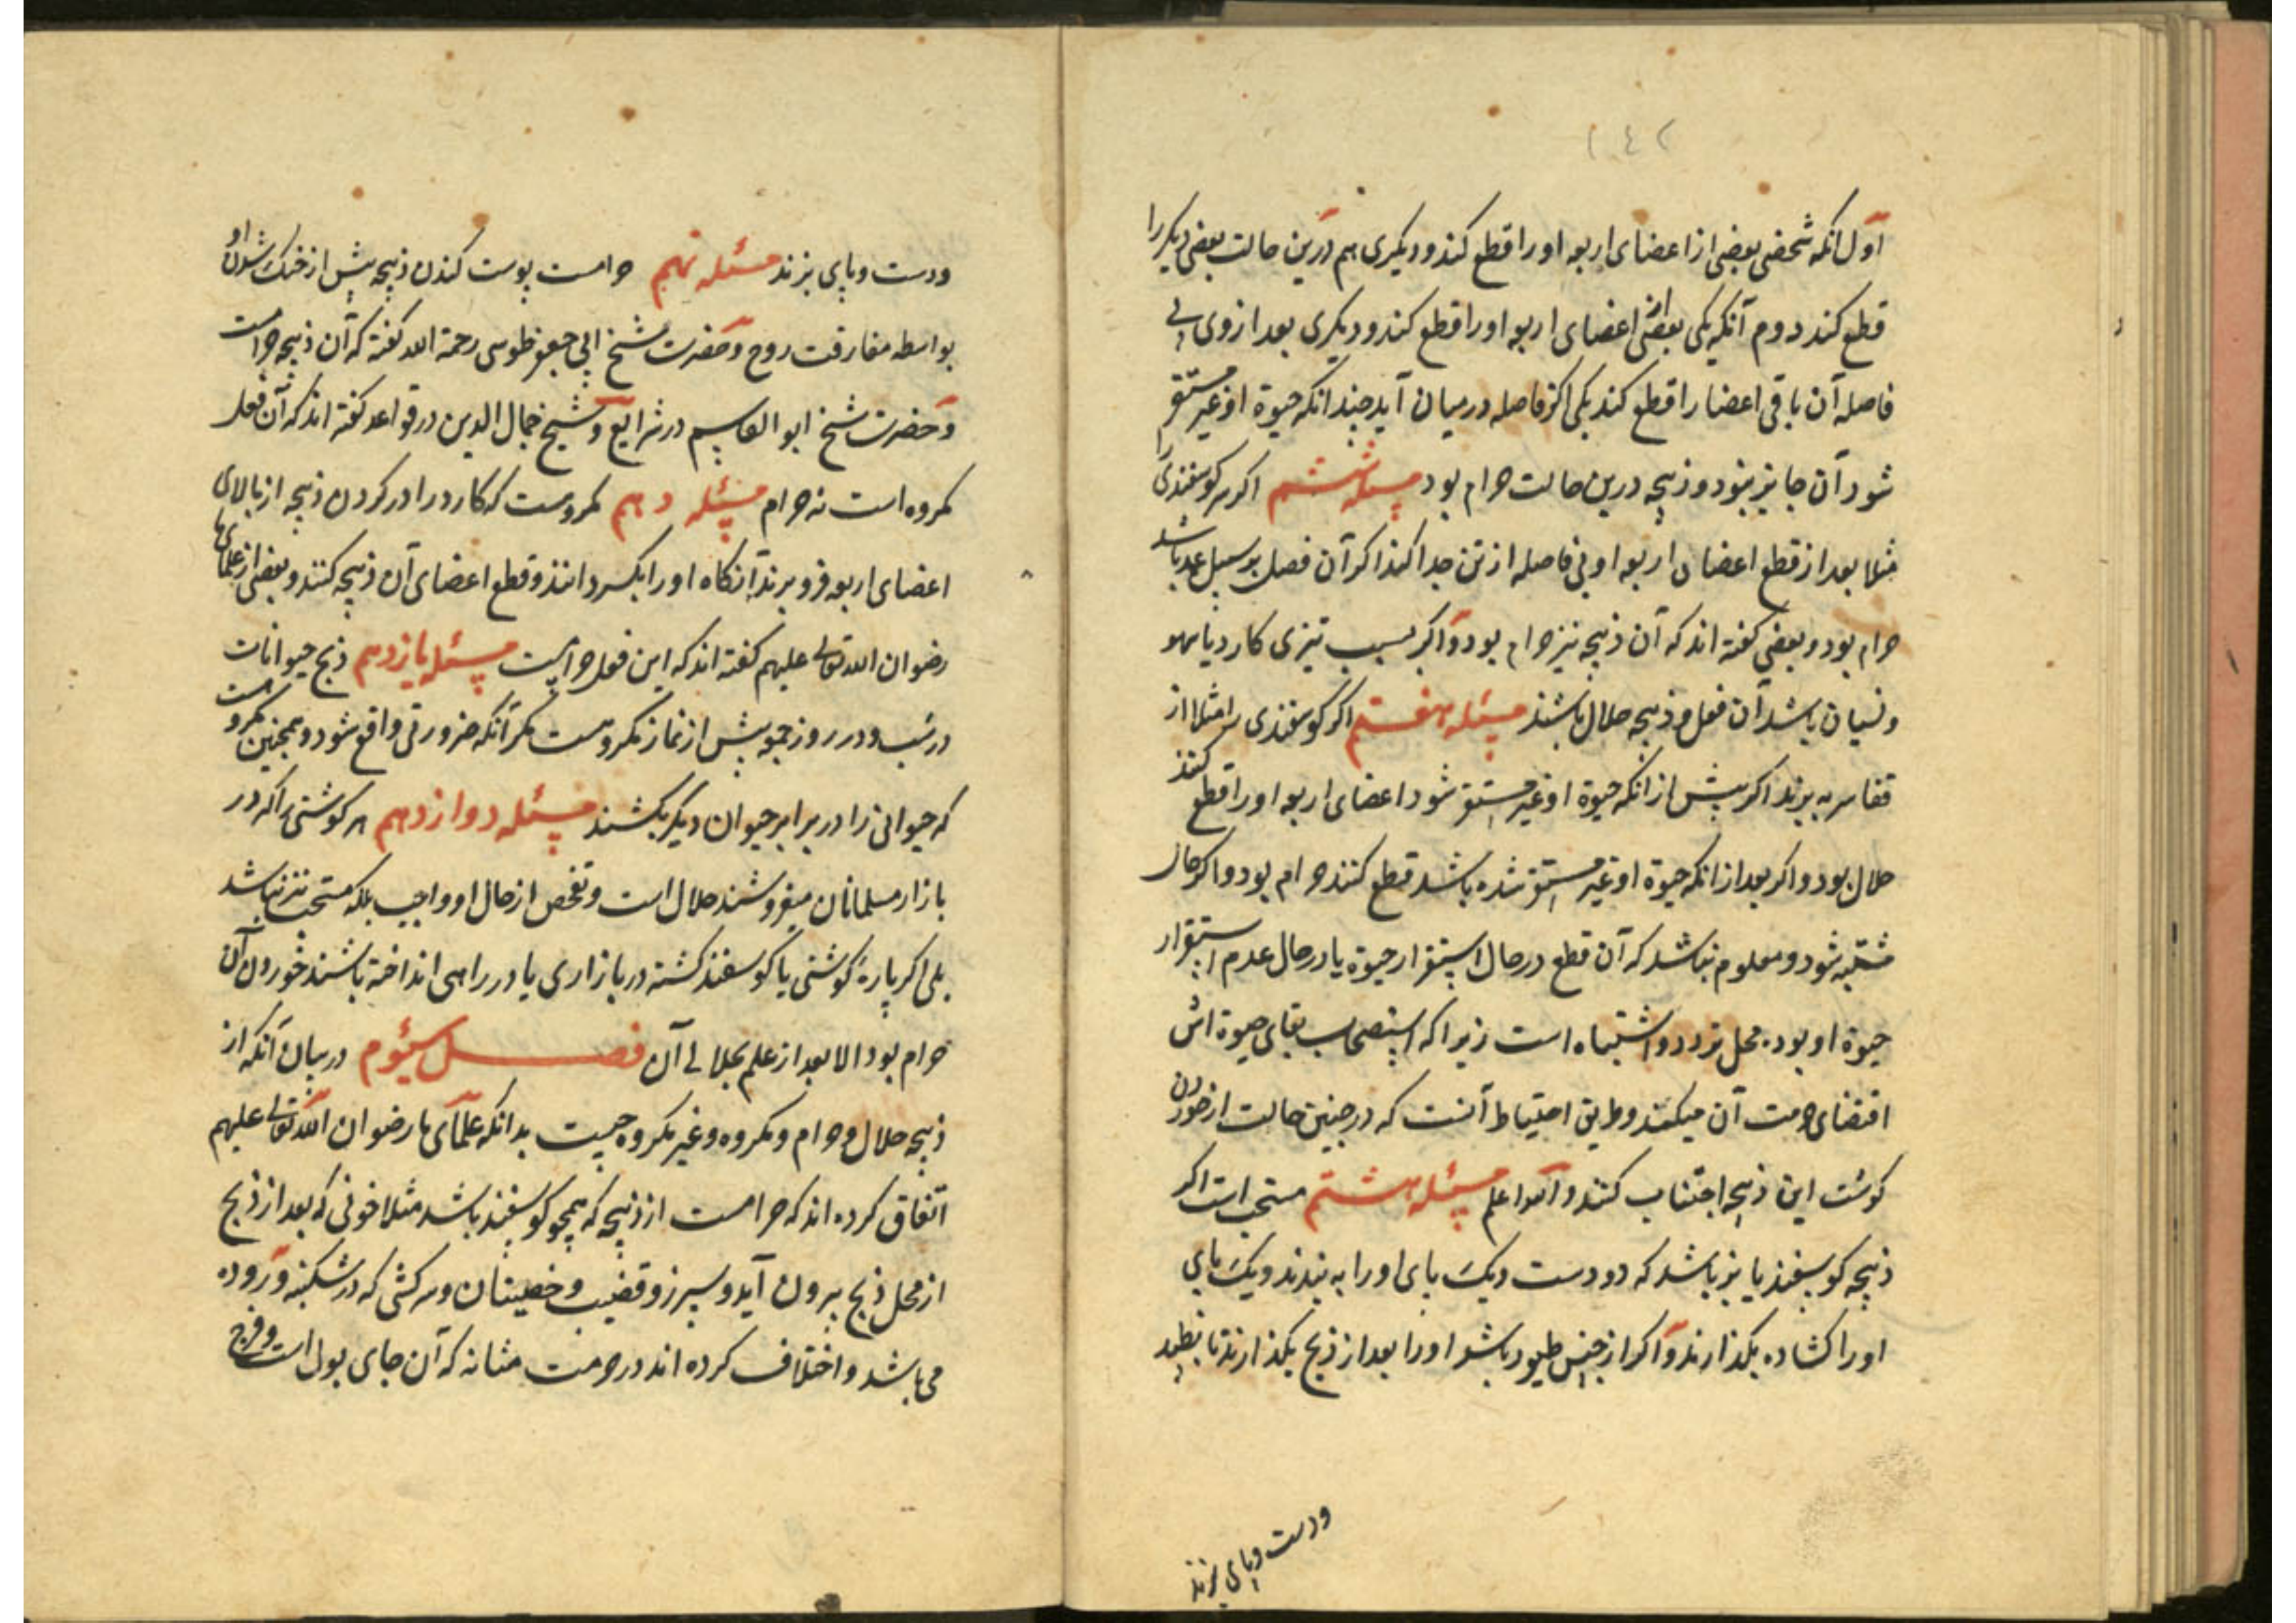 ١٤٢
اول آنکه شخصی بعضی از اعضای اربعه او را قطع کند و دیگری هم درین حالت بعضی دیگر را
قطع کند دوم آنکه یکی بعضی از اعضای اربعه او را قطع کند و دیگری بعد از وی بی
فاصله آن باقی اعضا را قطع کند یکی اگر فاصله در میان آید چندانکه حیوة او غیر مستقر
شود آن جایز نبود و ذبیحه درین حالت حرام بود مسئله ششم اگر سر کوسفندی را
مثلا بعد از قطع اعضای اربعه او بی فاصله از تن جدا کنند اگر آن فصل بر سبیل عمد باشد
حرام بود و بعضی گفته اند که آن ذبیحه نیز حرام بود و اگر بسبب تیزی کارد یا سهو
و نسیان باشد آن فعل و ذبیحه حلال باشند مسئله هفتم اگر کوسفندی را مثلا از
قفا سر به برند اگر پیش از آنکه حیوة او غیر مستقر شود اعضای اربعه او را قطع کنند
حلال بود و اگر بعد از آنکه حیوة او غیر مستقر شده باشد قطع کنند حرام بود و اگر حال
مشتبه شود و معلوم نباشد که آن قطع در حال استقرار حیوة یا در حال عدم استقرار
حیوة او بود محل تردد و اشتباه است زیرا که استصحاب بقای حیوة اش
اقتضای حرمت آن میکند و طریق احتیاط آنست که در چنین حالت از خوردن
کوشت این ذبیحه اجتناب کنند والله اعلم مسئله هشتم مستحب است اگر
ذبیحه کوسفند یا بز باشد که دو دست و یک پای او را به بندند و یک پای
او را کشاده بگذارند و اگر از جنس طیور باشد او را بعد از ذبح بگذارند تا بطپد
و دست و پای بزند
و دست و پای بزند مسئله نهم حرامست پوست کندن ذبیحه پیش از خنک شدن او
بواسطه مفارقت روح و حضرت شیخ ابی جعفر طوسی رحمة الله گفته که آن ذبیحه حرامست
و حضرت شیخ ابو القاسم در شرایع و شیخ جمال الدین در قواعد گفته اند که آن فعل
مکروه است نه حرام مسئله دهم مکروست که کارد را در کردن ذبیحه از بالای
اعضای اربعه فرو برند آنکاه او را بگردانند و قطع اعضای آن ذبیحه کنند و بعضی از علمای ما
رضوان الله تعالی علیهم گفته اند که این فعل حرامست مسئله یازدهم ذبح حیوانات
در شب و در روز جمعه پیش از نماز مکروست مگر آنکه ضرورتی واقع شود و همچنین مکروست
که حیوانی را در برابر حیوان دیگر بکشند مسئله دوازدهم هر کوشتی را که در
بازار مسلمانان میفروشند حلال است و تفحص از حال او واجب بلکه مستحب نیز نباشد
بلی اگر پارهٔ کوشتی یا کوسفند کشته در بازاری یا در راهی انداخته باشند خوردن آن
حرام بود الا بعد از علم بحلالی آن فصل سیوم در بیان آنکه از
ذبیحه حلال و حرام و مکروه و غیر مکروه چیست بدانکه علمای ما رضوان الله تعالی علیهم
اتفاق کرده اند که حرامست از ذبیحه که همچو کوسفند باشد مثلا خونی که بعد از ذبح
از محل ذبح بیرون آید و سپرز و قضیب و خصیتان و سرکشی که در شکنبه و روده
می باشد و اختلاف کرده اند در حرمت مثانه که آن جای بول است و فرج